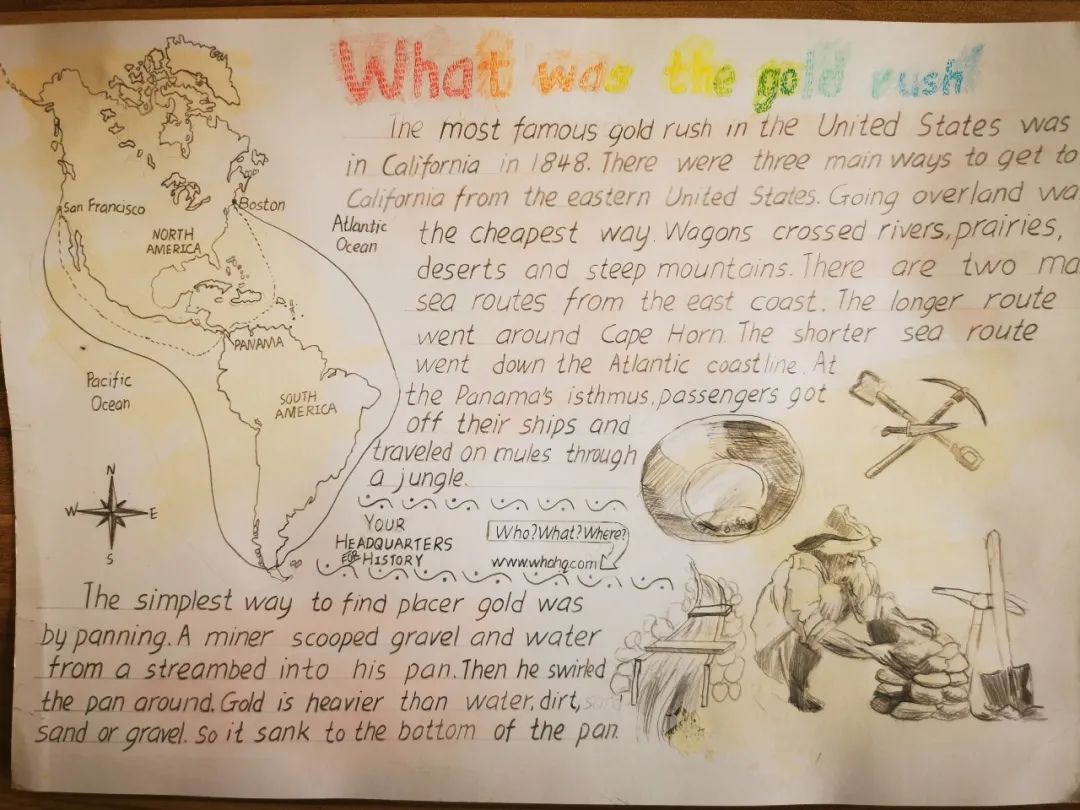 What was the gold rush
The most famous gold rush in the United States was
in California in 1848. There were three main ways to get to
California from the eastern United States. Going overland wa
the cheapest way. Wagons crossed rivers, prairies,
deserts and steep mountains. There are two ma
sea routes from the east coast. The longer route
went around Cape Horn. The shorter sea route
went down the Atlantic coastline. At
the Panama's isthmus, passengers got
off their ships and
traveled on mules through
a jungle.
San Francisco
Boston
Atlantic
Ocean
NORTH
AMERICA
PANAMA
Pacific
Ocean
SOUTH
AMERICA
N
W E
S
YOUR
HEADQUARTERS
FOR HISTORY
Who? What? Where?
www.whohq.com
The simplest way to find placer gold was
by panning. A miner scooped gravel and water
from a streambed into his pan. Then he swirled
the pan around. Gold is heavier than water, dirt,
sand or gravel. So it sank to the bottom of the pan.